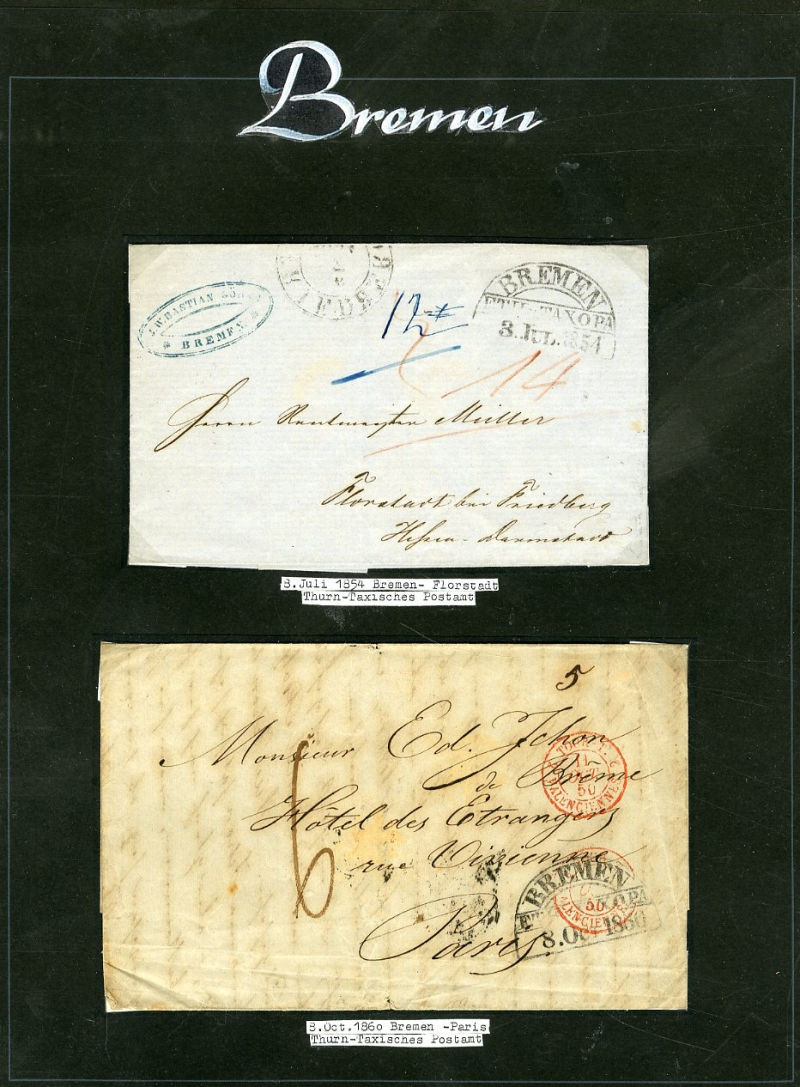 Bremen
BREMEN
TAXOPA
8.JUL.1854
BASTIAN
BREMEN
12
14
Herrn Rentmeister Müller
Florstadt bei Friedberg
Hessen-Darmstadt
8.Juli 1854 Bremen- Florstadt
Thurn-Taxisches Postamt
5
Monsieur Ed. Ichon
de Brême
Hôtel des Etrangers
rue Vivienne
Paris
6
VALENCIENNES
50
BREMEN
8.Oc 1850
8.Oct.186o Bremen -Paris
Thurn-Taxisches Postamt